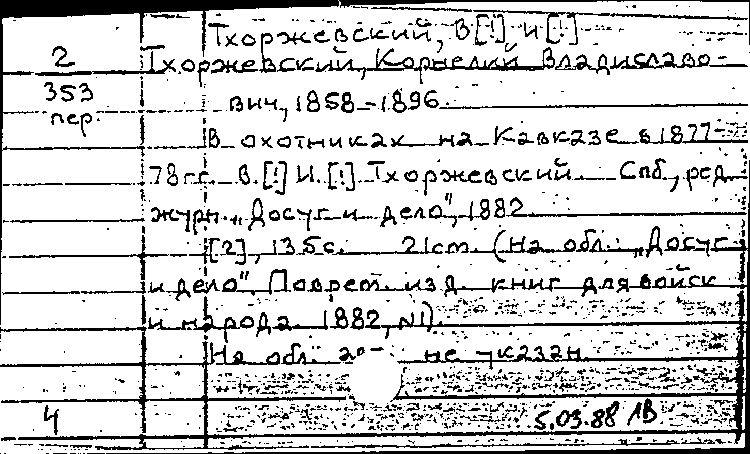 Тхоржевский, В[!] и [!]
2 Тхоржевский, Корнелий Владиславо-
353 вич, 1858-1896.
пер.
В охотниках на Кавказе в 1877-
78 гг. В.[!] И.[!] Тхоржевский. Спб, ред.
журн. „Досуг и дело", 1882.
[2], 135с. 21см. (На обл.: „Досуг
и дело". Поврем. изд. книг для войск
и народа. 1882, №1).
На обл. не указан.
4 5.03.88 ЛВ